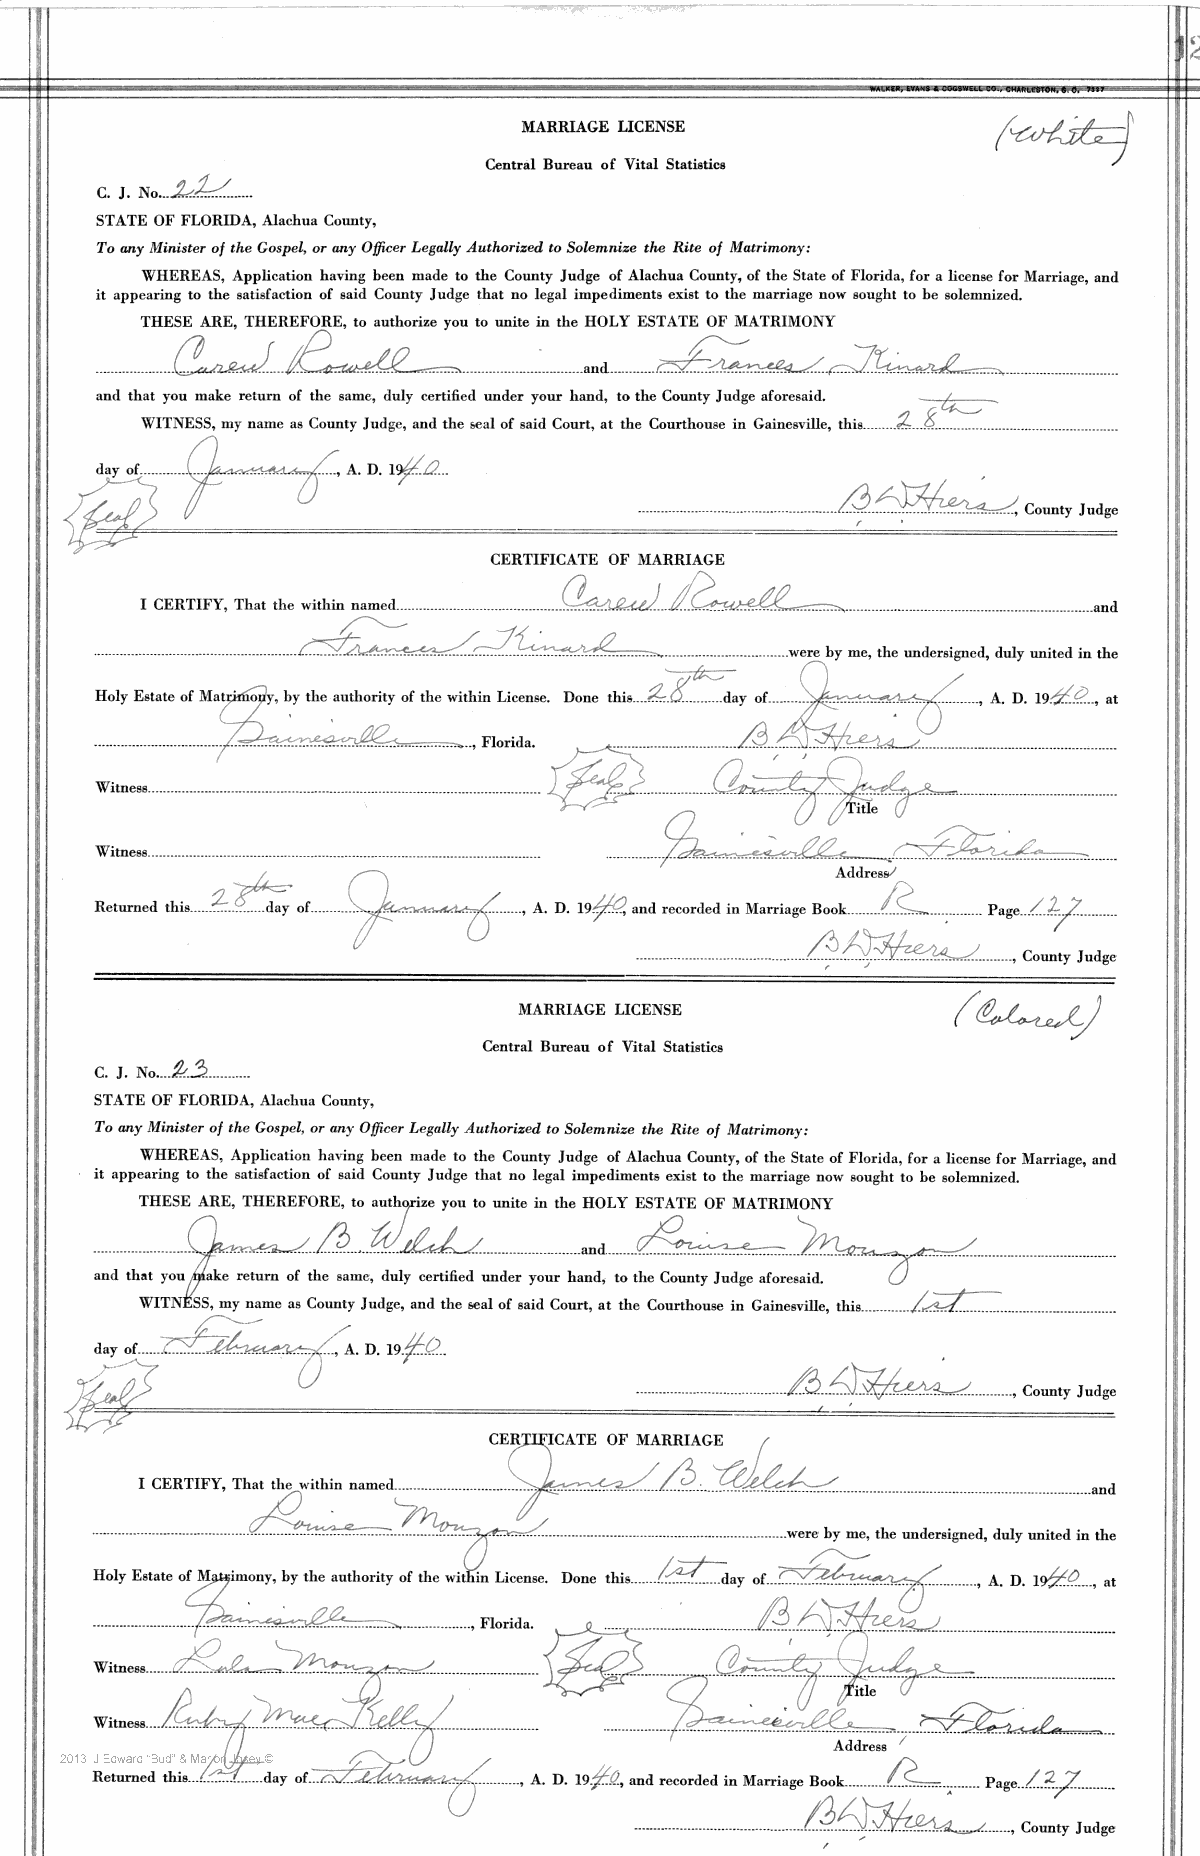 12
WALKER, EVANS & COGSWELL CO., CHARLESTON, S. C. 7337
MARRIAGE LICENSE
(White)
Central Bureau of Vital Statistics
C. J. No. 22
STATE OF FLORIDA, Alachua County,
To any Minister of the Gospel, or any Officer Legally Authorized to Solemnize the Rite of Matrimony:
WHEREAS, Application having been made to the County Judge of Alachua County, of the State of Florida, for a license for Marriage, and
it appearing to the satisfaction of said County Judge that no legal impediments exist to the marriage now sought to be solemnized.
THESE ARE, THEREFORE, to authorize you to unite in the HOLY ESTATE OF MATRIMONY
Carew Rowell and Frances Kinard
and that you make return of the same, duly certified under your hand, to the County Judge aforesaid.
WITNESS, my name as County Judge, and the seal of said Court, at the Courthouse in Gainesville, this 28th
day of January, A. D. 1940
Seal
B D Hiers, County Judge
CERTIFICATE OF MARRIAGE
I CERTIFY, That the within named Carew Rowell and
Frances Kinard were by me, the undersigned, duly united in the
Holy Estate of Matrimony, by the authority of the within License. Done this 28th day of January, A. D. 1940, at
Gainesville, Florida. B D Hiers
Witness Seal County Judge
Title
Witness Gainesville, Florida
Address
Returned this 28th day of January, A. D. 1940, and recorded in Marriage Book R Page 127
B D Hiers, County Judge
MARRIAGE LICENSE
(Colored)
Central Bureau of Vital Statistics
C. J. No. 23
STATE OF FLORIDA, Alachua County,
To any Minister of the Gospel, or any Officer Legally Authorized to Solemnize the Rite of Matrimony:
WHEREAS, Application having been made to the County Judge of Alachua County, of the State of Florida, for a license for Marriage, and
it appearing to the satisfaction of said County Judge that no legal impediments exist to the marriage now sought to be solemnized.
THESE ARE, THEREFORE, to authorize you to unite in the HOLY ESTATE OF MATRIMONY
James B. Welch and Louise Mouzon
and that you make return of the same, duly certified under your hand, to the County Judge aforesaid.
WITNESS, my name as County Judge, and the seal of said Court, at the Courthouse in Gainesville, this 1st
day of February, A. D. 1940
Seal
B D Hiers, County Judge
CERTIFICATE OF MARRIAGE
I CERTIFY, That the within named James B. Welch and
Louise Mouzon were by me, the undersigned, duly united in the
Holy Estate of Matrimony, by the authority of the within License. Done this 1st day of February, A. D. 1940, at
Gainesville, Florida. B D Hiers
Witness Lula Mouzon Seal County Judge
Title
Witness Ruby Mae Kelly Gainesville, Florida
Address
2013 J Edward "Bud" & Marion Josey ©
Returned this 1st day of February, A. D. 1940, and recorded in Marriage Book R Page 127
B D Hiers, County Judge